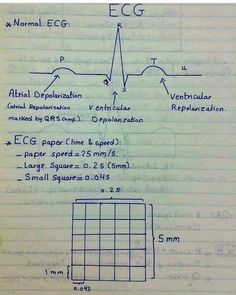 ECG
* Normal ECG:
R
P
T
u
Q
S
Atrial Depolarization
(atrial Repolarization
marked by QRS Comp.).
Ventricular
Depolarization
Ventricular
Repolarization.
* ECG paper (time & speed):
_ paper speed = 25 mm/s.
_ Large Square = 0.2S (5mm).
_ Small Square = 0.04S
0.2S
5mm
1mm
0.04S